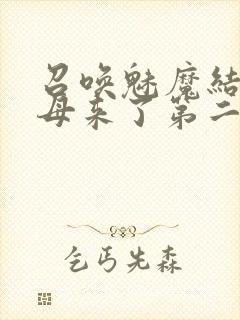 召唤魅魔結
母来了第二
乞丐先森